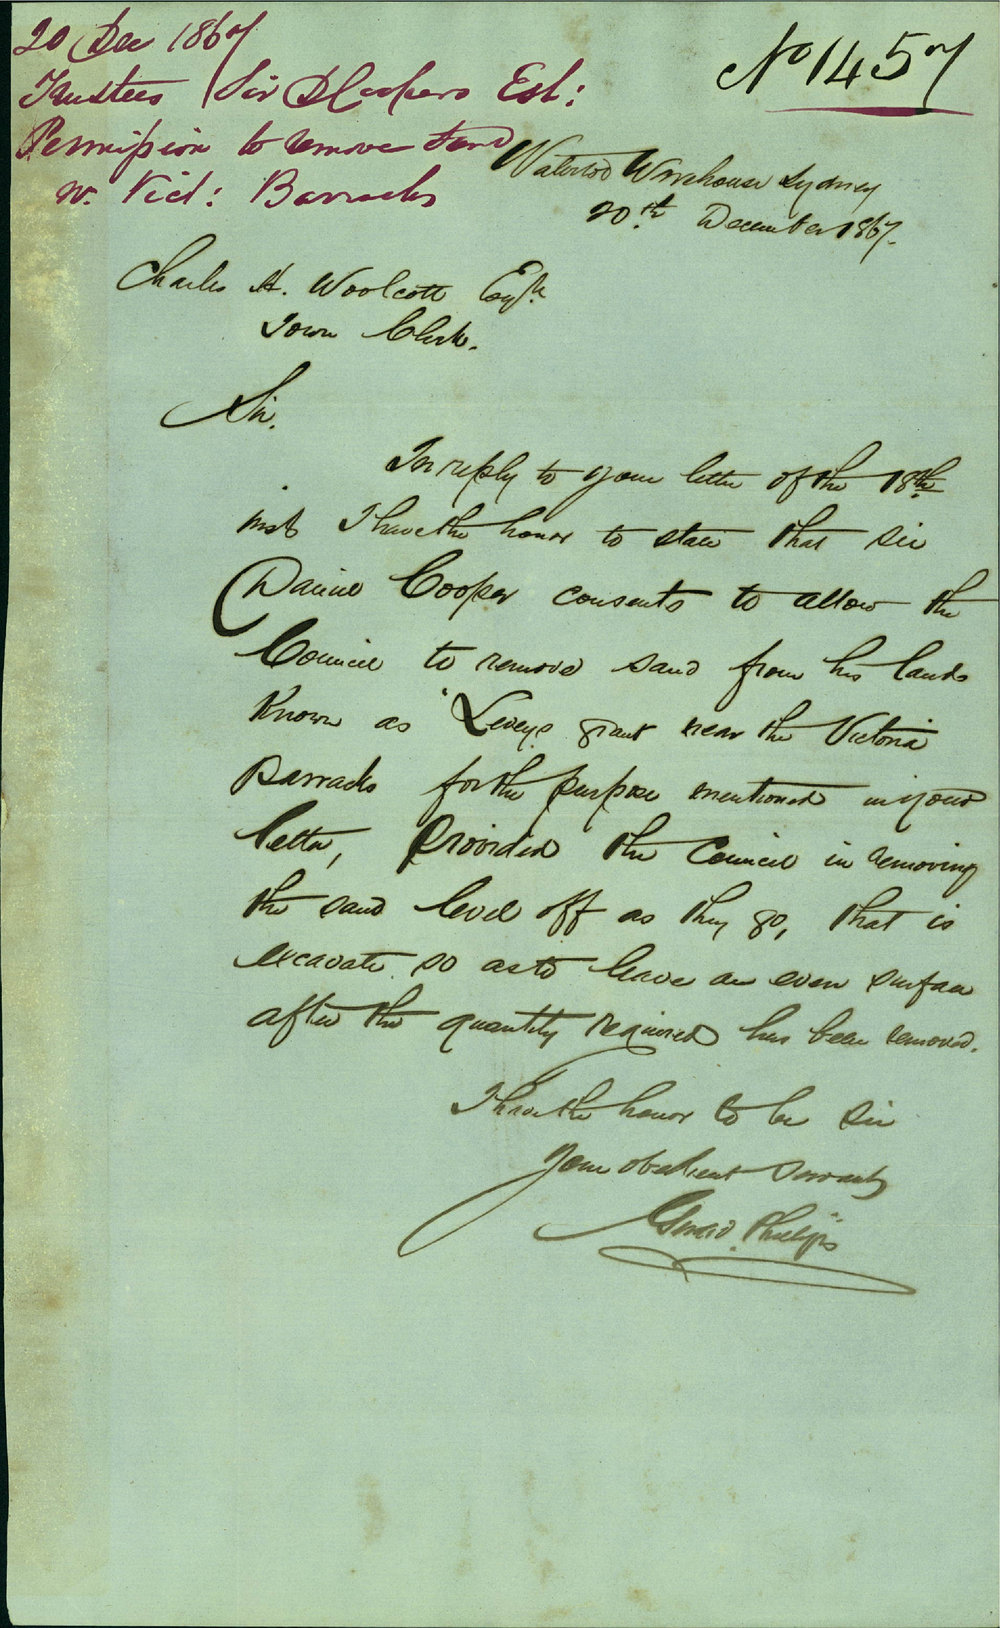 20 Dec 1867
Trustees Sir D Coopers Est:
Permission to remove Sand
nr. Vict: Barracks
No 1457
Waterloo Warehouse Sydney
20th December 1867.
Charles H. Woolcott Esqre
Town Clerk.
Sir.
In reply to your letter of the 18th
inst I have the honor to state that Sir
Daniel Cooper consents to allow the
Council to remove sand from his lands
known as Leveys grant near the Victoria
Barracks for the purpose mentioned in your
letter, Provided the Council in removing
the sand level off as they go, that is
excavate so as to leave an even surface
after the quantity required has been removed.
I have the honor to be Sir
Your obedient Servant
Phillips